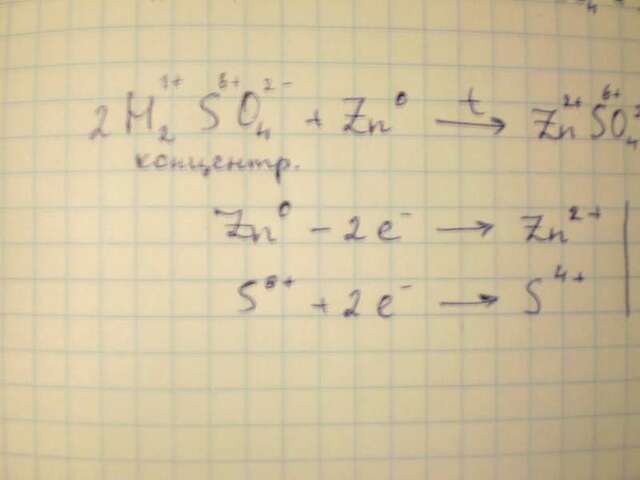 2H₂¹⁺S⁶⁺O₄²⁻ + Zn⁰ —t→ Zn²⁺S⁶⁺O₄
концентр.
Zn⁰ − 2e⁻ → Zn²⁺
S⁶⁺ + 2e⁻ → S⁴⁺